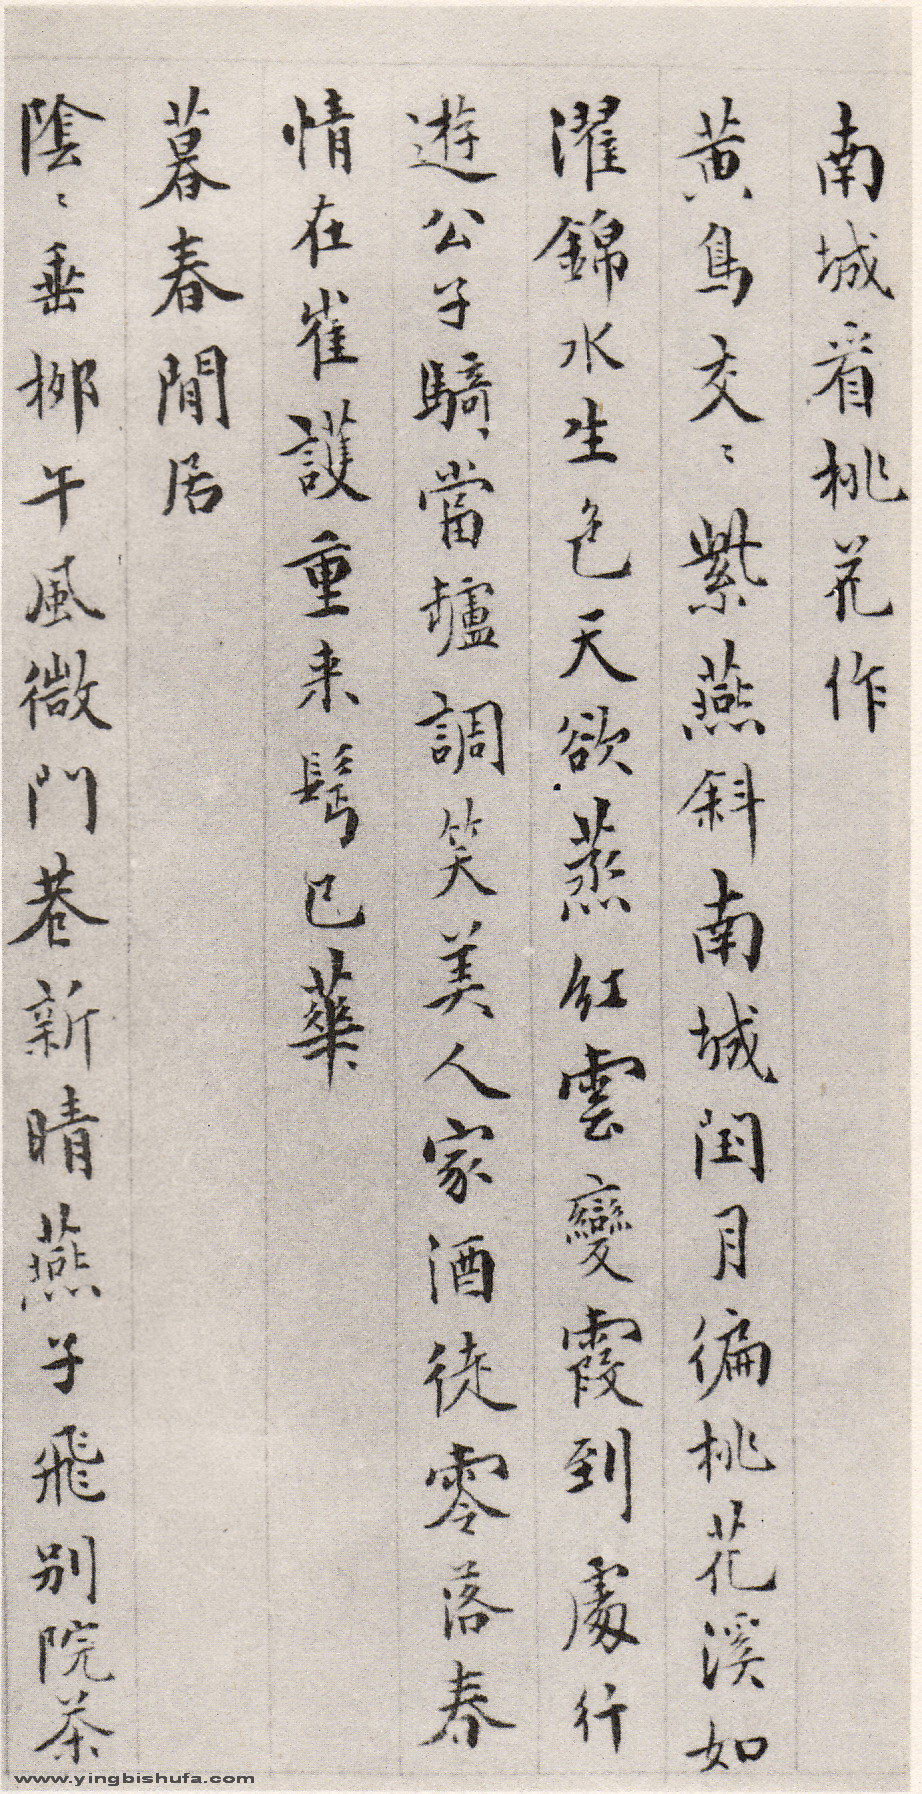 南城看桃花作
黄鳥交〻紫燕斜南城閏月徧桃花溪如
濯錦水生色天欲蒸紅雲變霞到處行
遊公子騎當壚調笑美人家酒徒零落春
情在崔護重来鬢已華
暮春閒居
陰〻垂柳午風微門巷新晴燕子飛别院茶
www.yingbishufa.com